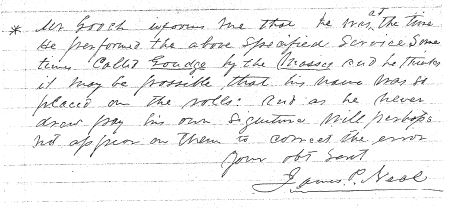 * Mr Gooch informs me that he was, at the time
he performed the above specified Service Some
times Called Goudge by the Masses and he thinks
it may be possible, that his name was so
placed on the rolls: and as he never
drew pay his own signature will perhaps
not appear on them to correct the error
Your obt Servt
James P. Neal